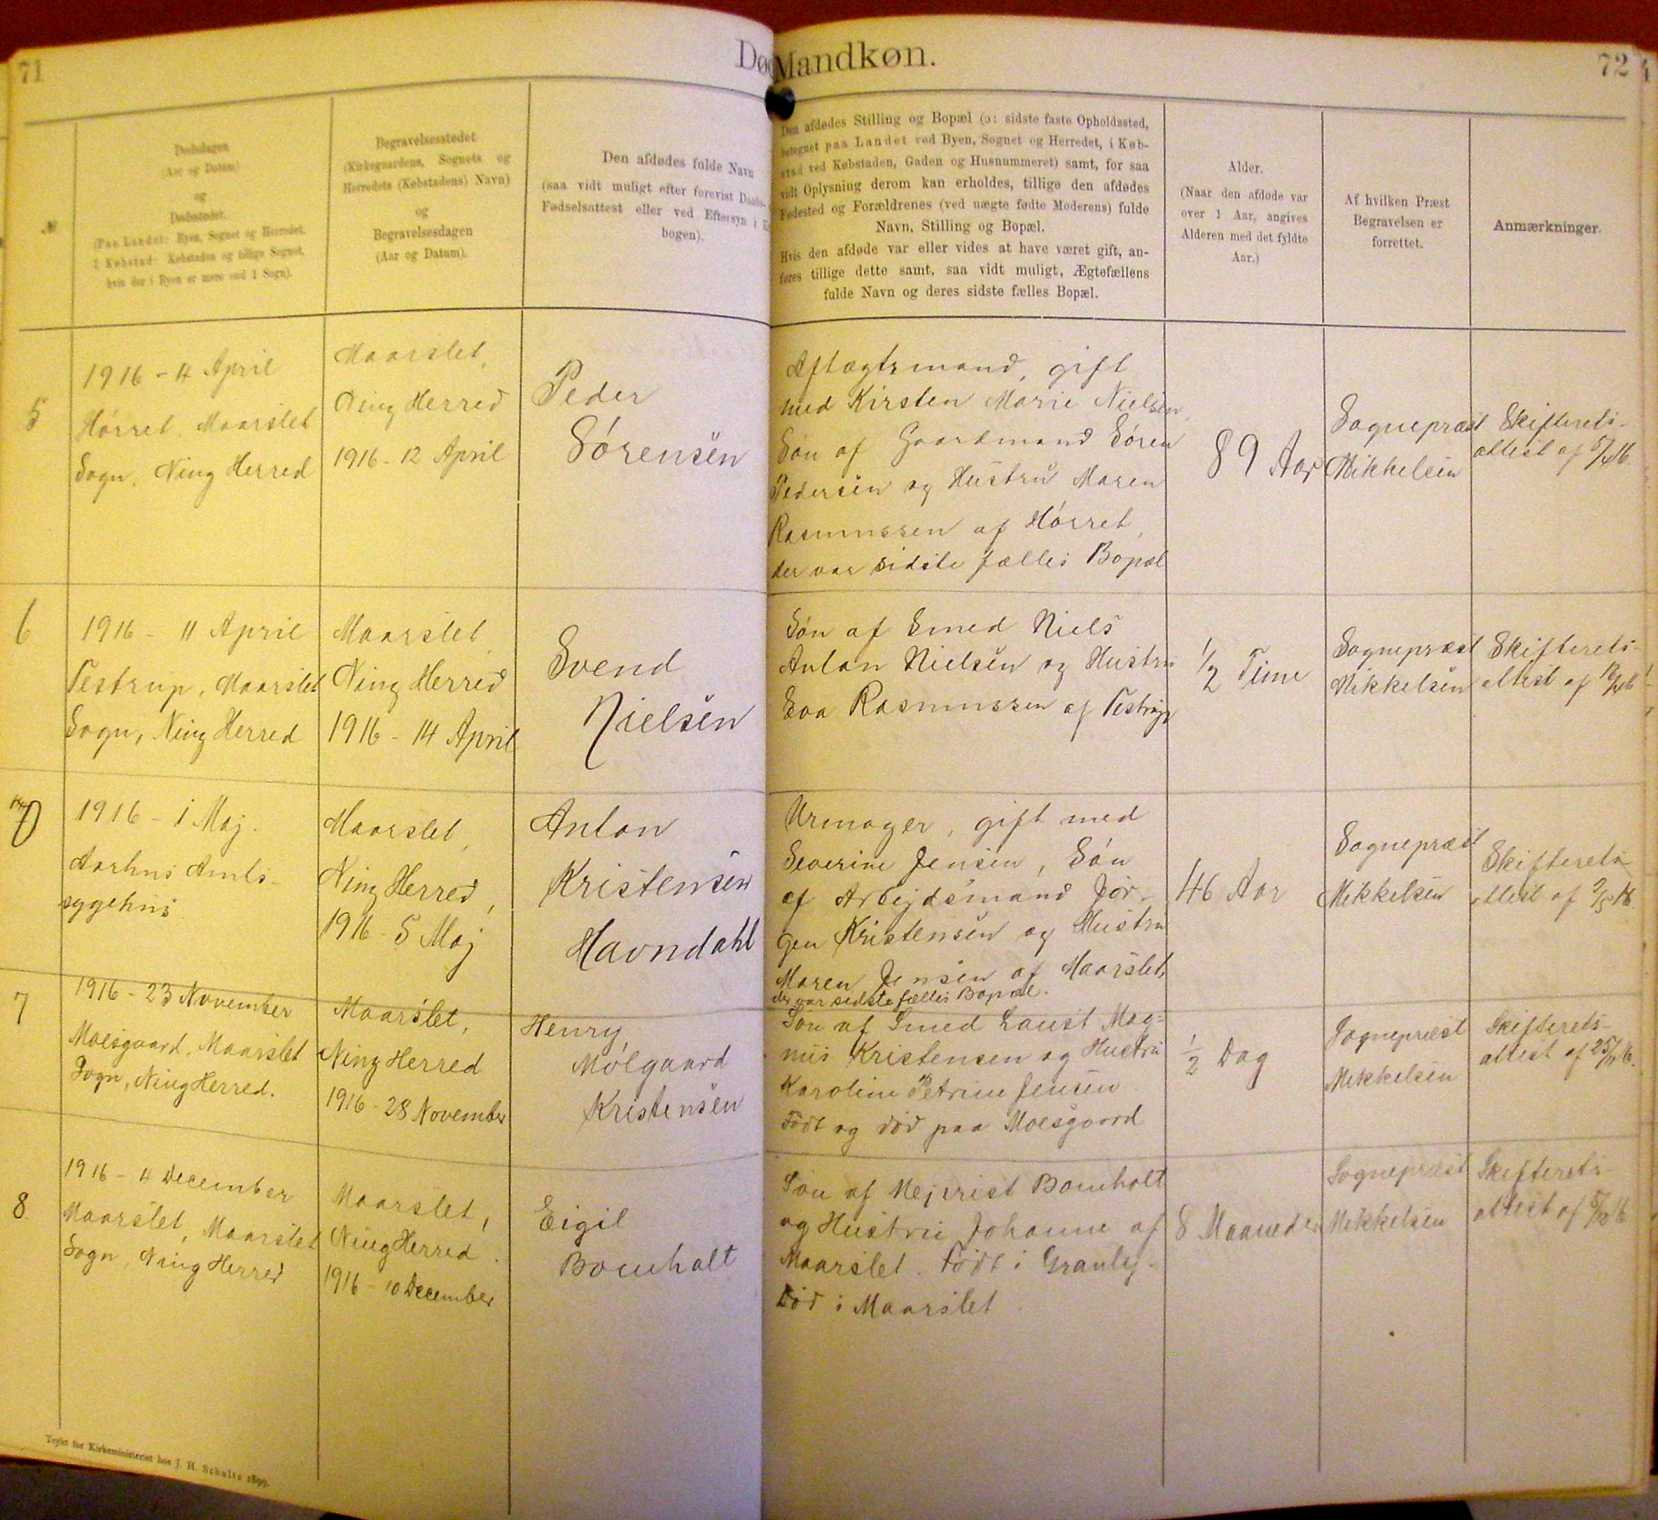 71
Dø
Mandkøn.
72
№
Dødsdagen
(Aar og Datum)
og
Dødsstedet.
(Paa Landet: Byen, Sognet og Herredet.
I Købstad: Købstaden og tillige Sognet,
hvis der i Byen er mere end 1 Sogn).
Begravelsesstedet
(Kirkegaardens, Sognets og
Herredets (Købstadens) Navn)
og
Begravelsesdagen
(Aar og Datum).
Den afdødes fulde Navn
(saa vidt muligt efter forevist Daabs-
Fødselsattest eller ved Eftersyn i
bogen).
Den afdødes Stilling og Bopæl (ɔ: sidste faste Opholdssted,
betegnet paa Landet ved Byen, Sognet og Herredet, i Køb-
stad ved Købstaden, Gaden og Husnummeret) samt, for saa
vidt Oplysning derom kan erholdes, tillige den afdødes
Fødested og Forældrenes (ved uægte fødte Moderens) fulde
Navn, Stilling og Bopæl.
Hvis den afdøde var eller vides at have været gift, an-
føres tillige dette samt, saa vidt muligt, Ægtefællens
fulde Navn og deres sidste fælles Bopæl.
Alder.
(Naar den afdøde var
over 1 Aar, angives
Alderen med det fyldte
Aar.)
Af hvilken Præst
Begravelsen er
forrettet.
Anmærkninger.
5
1916 - 4 April
Hørret, Maarslet
Sogn, Ning Herred
Maarslet,
Ning Herred
1916 - 12 April
Peder
Sörensen
Aftægtsmand, gift
med Kirsten Marie Nielsen,
Søn af Gaardmand Sören
Pedersen og Hustru Maren
Rasmussen af Hørret,
der var sidste fælles Bopæl
89 Aar
Sognepræst
Mikkelsen
Skifterets-
attest af 5/4 16.
6
1916 - 11 April
Testrup, Maarslet
Sogn, Ning Herred
Maarslet
Ning Herred
1916 - 14 April
Svend
Nielsen
Søn af Smed Niels
Anton Nielsen og Hustru
Eva Rasmussen af Testrup
1/2 Time
Sognepræst
Mikkelsen
Skifterets-
attest af 12/4 16
1916 - 1 Maj.
Aarhus Amts-
sygehus
Maarslet,
Ning Herred,
1916 - 5 Maj
Anton
Kristensen
Havndahl
Urmager, gift med
Severine Jensen, Søn
af Arbejdsmand Jør-
gen Kristensen og Hustru
Maren Jensen af Maarslet,
der var sidste fælles Bopæl.
46 Aar
Sognepræst
Mikkelsen
Skifterets
attest af 2/5 16
7
1916 - 23 November
Moesgaard, Maarslet
Sogn, Ning Herred.
Maarslet,
Ning Herred
1916 - 28 November
Henry
Mølgaard
Kristensen
Søn af Smed Laust Mag-
nus Kristensen og Hustru
Karoline Petrine Jensen
Født og død paa Moesgaard
1/2 Dag
Sognepræst
Mikkelsen
Skifterets-
attest af 25/11 16.
8
1916 - 4 December
Maarslet, Maarslet
Sogn, Ning Herred
Maarslet,
Ning Herred.
1916 - 10 December
Eigil
Bomholt
Søn af Mejerist Bomholt
og Hustru Johanne af
Maarslet. Født i Granlej-
Død i Maarslet.
8 Maaneder
Sognepræst
Mikkelsen
Skifterets-
attest af 8/12 16
Trykt for Kirkeministeriet hos J. H. Schultz 1899.